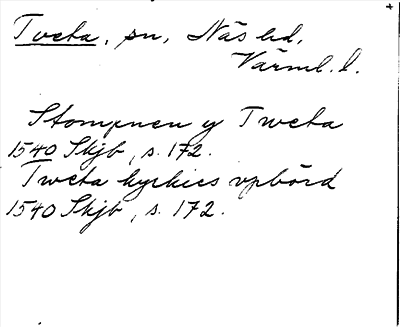 Tveta, sn, Näs hd,
Värml. l.
Stompnen y Tweta
1540 Skjb, s. 172.
Tweta kyrkies vpbörd
1540 Skjb, s. 172.